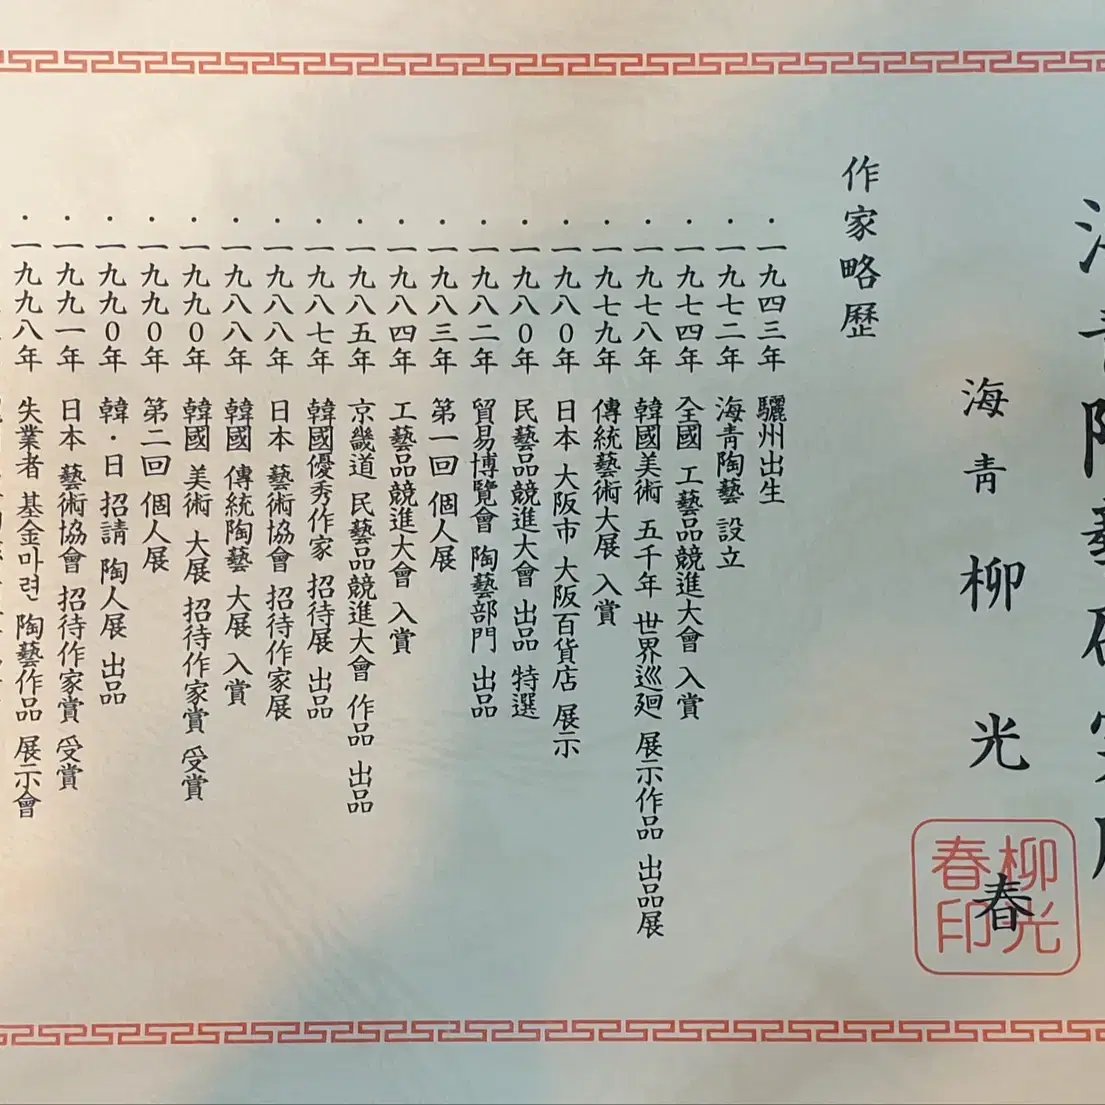 海青陶藝研究所
海青 柳光春
柳光春印
作家略歷
· 一九四三年 驪州出生
· 一九七二年 海靑陶藝 設立
· 一九七四年 全國 工藝品競進大會 入賞
· 一九七八年 韓國美術 五千年 世界巡廻 展示作品 出品展
· 一九七九年 傳統藝術大展 入賞
· 一九八0年 日本 大阪市 大阪百貨店 展示
· 一九八0年 民藝品競進大會 出品 特選
· 一九八二年 貿易博覽會 陶藝部門 出品
· 一九八三年 第一回 個人展
· 一九八四年 工藝品競進大會 入賞
· 一九八五年 京畿道 民藝品競進大會 作品 出品
· 一九八七年 韓國優秀作家 招待展 出品
· 一九八八年 日本 藝術協會 招待作家展
· 一九八八年 韓國 傳統陶藝 大展 入賞
· 一九九0年 韓國 美術 大展 招待作家賞 受賞
· 一九九0年 第二回 個人展
· 一九九0年 韓·日 招請 陶人展 出品
· 一九九一年 日本 藝術協會 招待作家賞 受賞
· 一九九八年 失業者 基金마련 陶藝作品 展示會